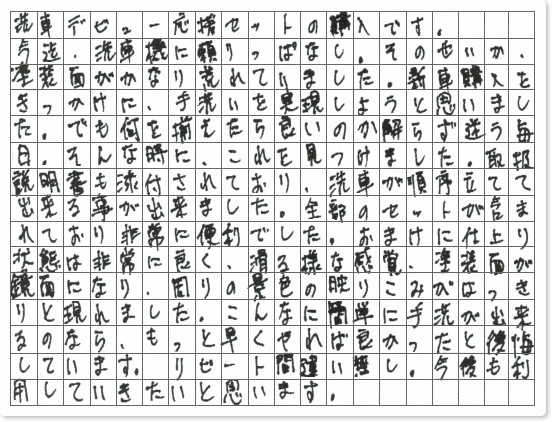 洗車デビュー応援セットの購入です。
今迄、洗車機に頼りっぱなし。そのせいか、
塗装面がかなり荒れていました。新車購入を
きっかけに、手洗いを実現しようと思いまし
た。でも何を揃えたら良いのか解らず迷う毎
日。そんな時に、これを見つけました。取扱
説明書も添付されており、洗車が順序立てて
出来る事が出来ました。全部のセットが言ま
れており非常に便利でした。おまけに仕上り
状態は非常に良く、滑る様な感覚、塗装面が
鏡面になり、周りの景色の映りこみがはっき
りと現れました。こんなに簡単に手洗が出来
るのなら、もっと早くやれば良かったと後悔
しています。リピート間違い無し。今後も利
用していきたいと思います。